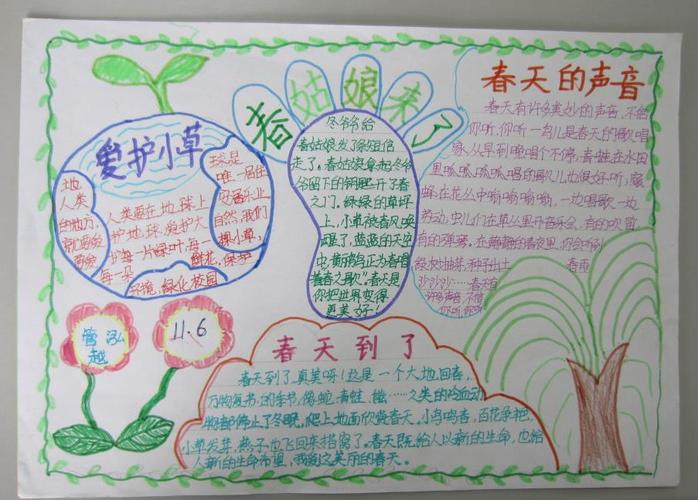 春姑娘来了
春天的声音
爱护小草
地球是
人类
唯一居住
的地方,
人类要在地球上
安居乐业
护地球,爱护大
自然,我们
护每一片绿叶,每一
棵小草,
每一朵
鲜花,保护
环境,绿化校园
冬爷爷给
春姑娘发了条短信
走了。春姑娘拿起冬爷
爷留下的钥匙开了春
之门。绿绿的草坪
上,小草被春风唤
醒了,蓝蓝的天空
中,
正为春唱
着春之歌”春天是
你把世界变得
更美好!
春天有许多美妙的声音,不信
你听,你听
鸟儿是春天的歌唱
家,从早到晚唱个不停,青蛙在水田
里呱呱呱呱唱的歌儿也很好听,蜜
蜂在花丛中嗡嗡嗡嗡,一边唱歌一边
劳动,虫儿们在草丛里开音乐会,有的吹笛
有的弹琴。在静静的春夜里,你会听到
种子出土
春雨
沙沙沙……春天有
许多声音,不信
你听你听
管泓
越
11.6
春天到了
春天到了,真美呀!这是一个大地回春,
万物复书的季节,
蛇,青蛙,
……之类的冷血动
物都停止了冬眠,爬上地面欣赏春天。小鸟鸣春,百花争艳
小草发芽,燕子也飞回来搭窝了。春天既给人以新的生命,也给
人新的生命希望,我爱这美丽的春天。